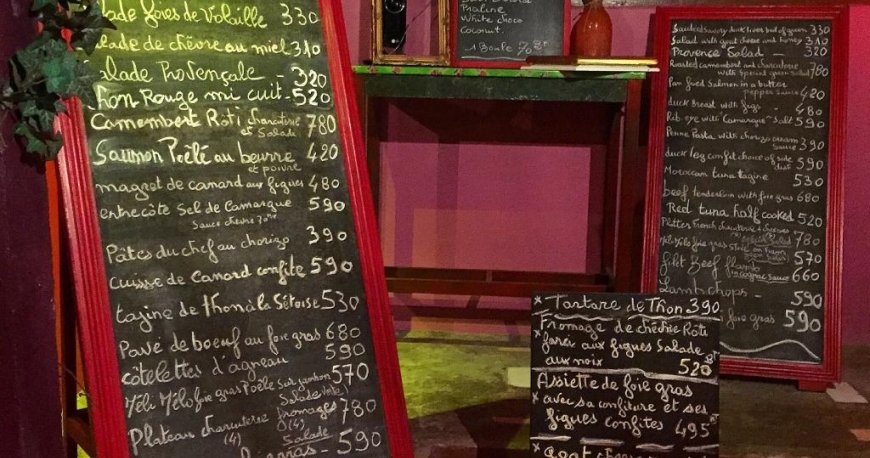 Salade foies de Volaille 330
Salade de chèvre au miel 310
Salade Provençale 320
Thon Rouge mi cuit - 520
Camembert Roti charcuterie
et Salade 780
Saumon Poêlé au beurre
et poivre 420
magret de canard aux figues 480
entrecôte Sel de Camargue 590
Sauce chèvre 70
Pâtes du chef au chorizo 390
cuisse de Canard confite 590
tagine de thon à la Sétoise 530
Pavé de boeuf au foie gras 680
côtelettes d'agneau 590
Méli Mélo foie gras Poêlé Sur jambon 570
Salade verte
Plateau charcuterie fromages 780
(4) (4)
Salade
gras - 590
Praline
White choco
Coconut
1 Boule 70
330
Salad with goat cheese and honey 310
Provence Salad - 320
Roasted camembert and charcuterie 780
with Special green Salad
Pan fried Salmon in a butter
pepper Sauce 420
duck Breast with figs 480
Rib eye with "Camargue" Salt 590
Penne Pasta with chorizo cream
Sauce 390
duck leg confit choice of side
dish 590
Moroccan tuna tagine 530
beef tenderloin with foie gras 680
Red tuna half cooked 520
French charcuterie 780
foie gras 570
Beef
cognac Sauce 660
Lamb chops - 590
foie gras 590
* Tartare de Thon 390
* Fromage de chèvre Roti
farcie aux figues Salade
aux noix 520
Assiette de foie gras
* avec sa confiture et ses
figues confites 495
* Goat cheese